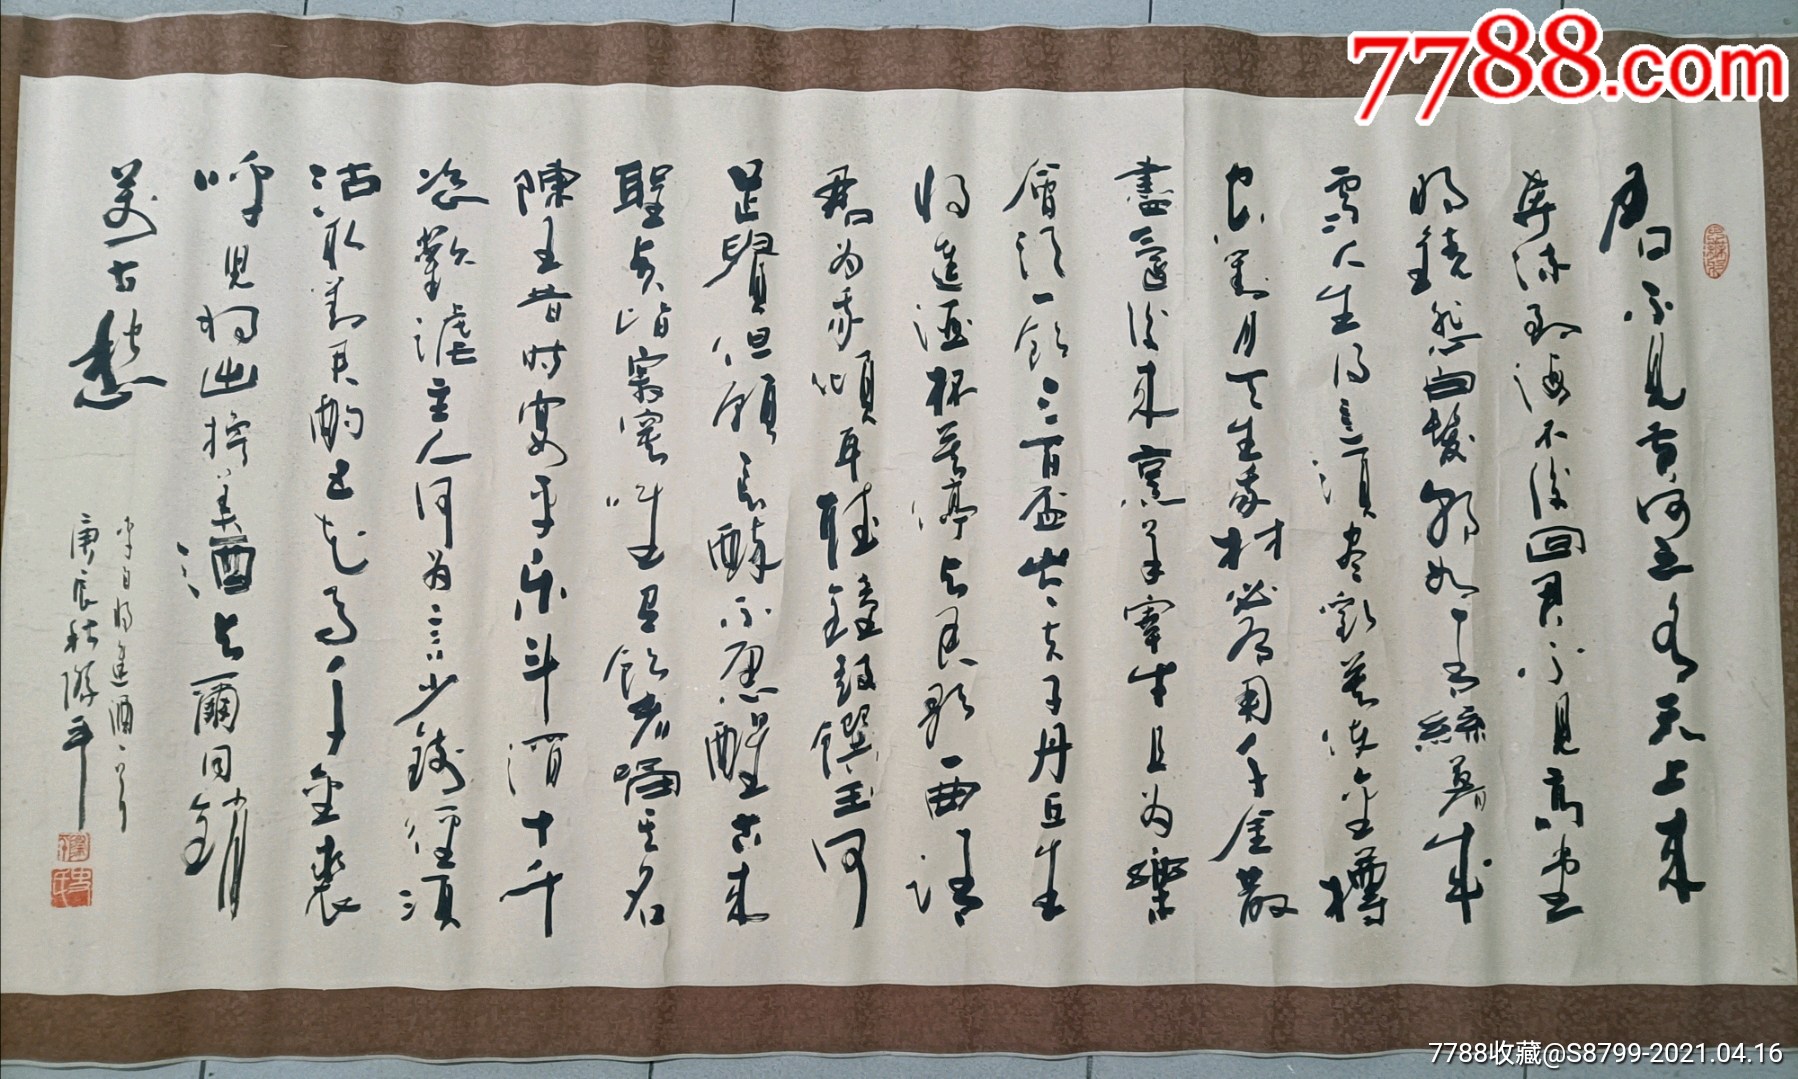 君不見黃河之水天上來
奔流到海不復回君不見高堂
明鏡悲白髮朝如青絲暮成
雪人生得意須盡歡莫使金樽
空對月天生我材必有用千金散
盡還復來烹羊宰牛且為樂
會須一飲三百杯岑夫子丹丘生
將進酒杯莫停與君歌一曲請
君為我傾耳聽鐘鼓饌玉何
足貴但願長醉不願醒古來
聖賢皆寂寞唯有飲者留其名
陳王昔時宴平樂斗酒十千
恣歡謔主人何為言少錢徑須
沽取對君酌五花馬千金裘
呼兒將出換美酒與爾同銷
萬古愁
李白將進酒一首
庚辰秋
7788.com
7788收藏@S8799-2021.04.16